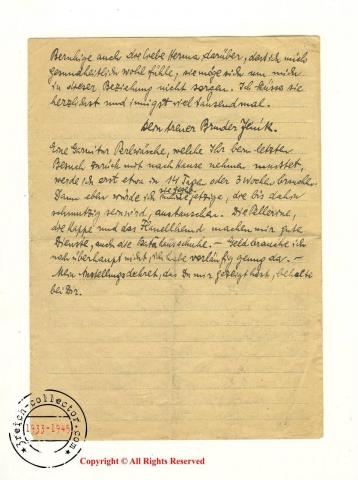 Beruhige auch die liebe Herma darüber, dass ich mich
gesundheitlich wohl fühle, sie möge sich um mich
in dieser Beziehung nicht sorgen. Ich küsse sie
herzlichst und innigst viel tausendmal.
Dein treuer Bruder
Eine Garnitur Perlwäsche, welche Ihr beim letzten
Besuch zurück mit nach Hause nehmen musstet,
werde ich erst etwa in 14 Tagen oder 3 Wochen brauchen.
Dann aber würde ich jetzige, die bis dahin
schmutzig sein wird, austauschen. Die Pellerine,
die Kappe und das Flanellhemd machen mir gute
Dienste, auch die Batahausschuhe. – Geld brauche ich
noch überhaupt nicht, ich habe vorläufig genug da. –
Mein Anstellungsdekret, das Du mir gezeigt hast, behalte
bei Dir.
3reich-collector.com
1933-1945
Copyright © All Rights Reserved